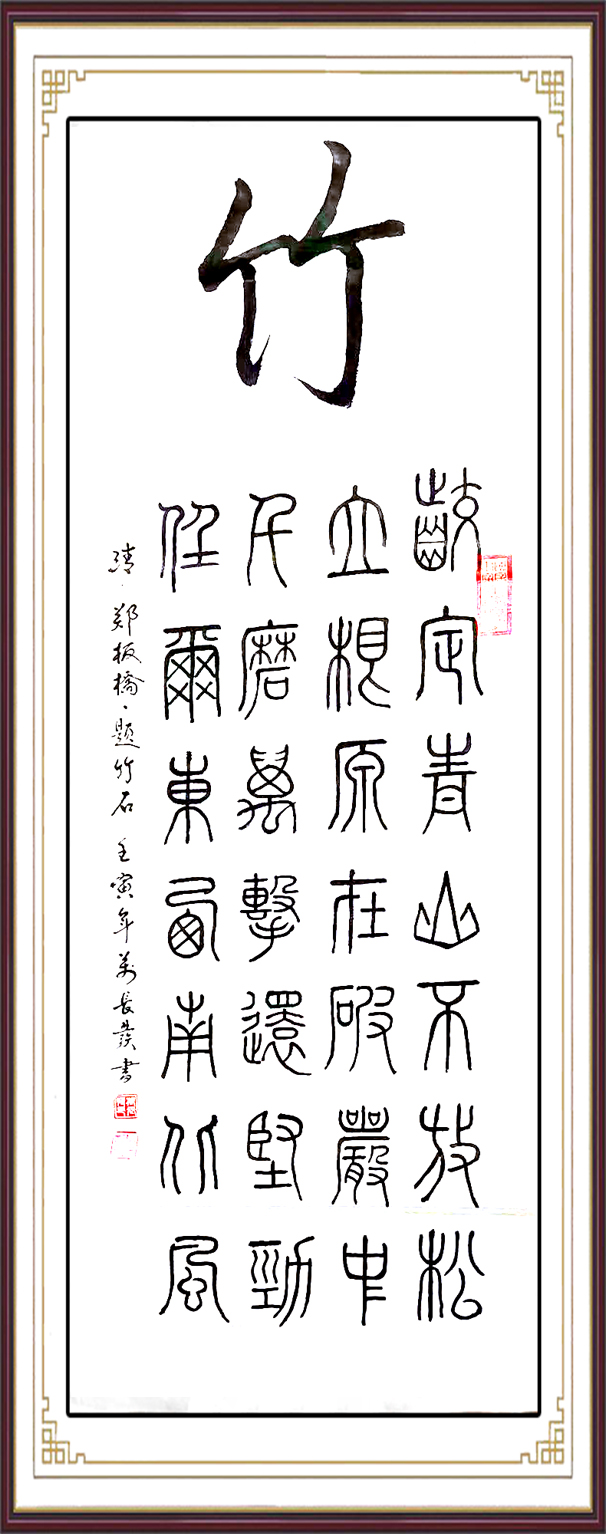 竹
齩定青山不放松
立根原在破巖中
千磨萬擊還堅勁
任爾東西南北風
清·郑板橋·題竹石 壬寅年萬長發書